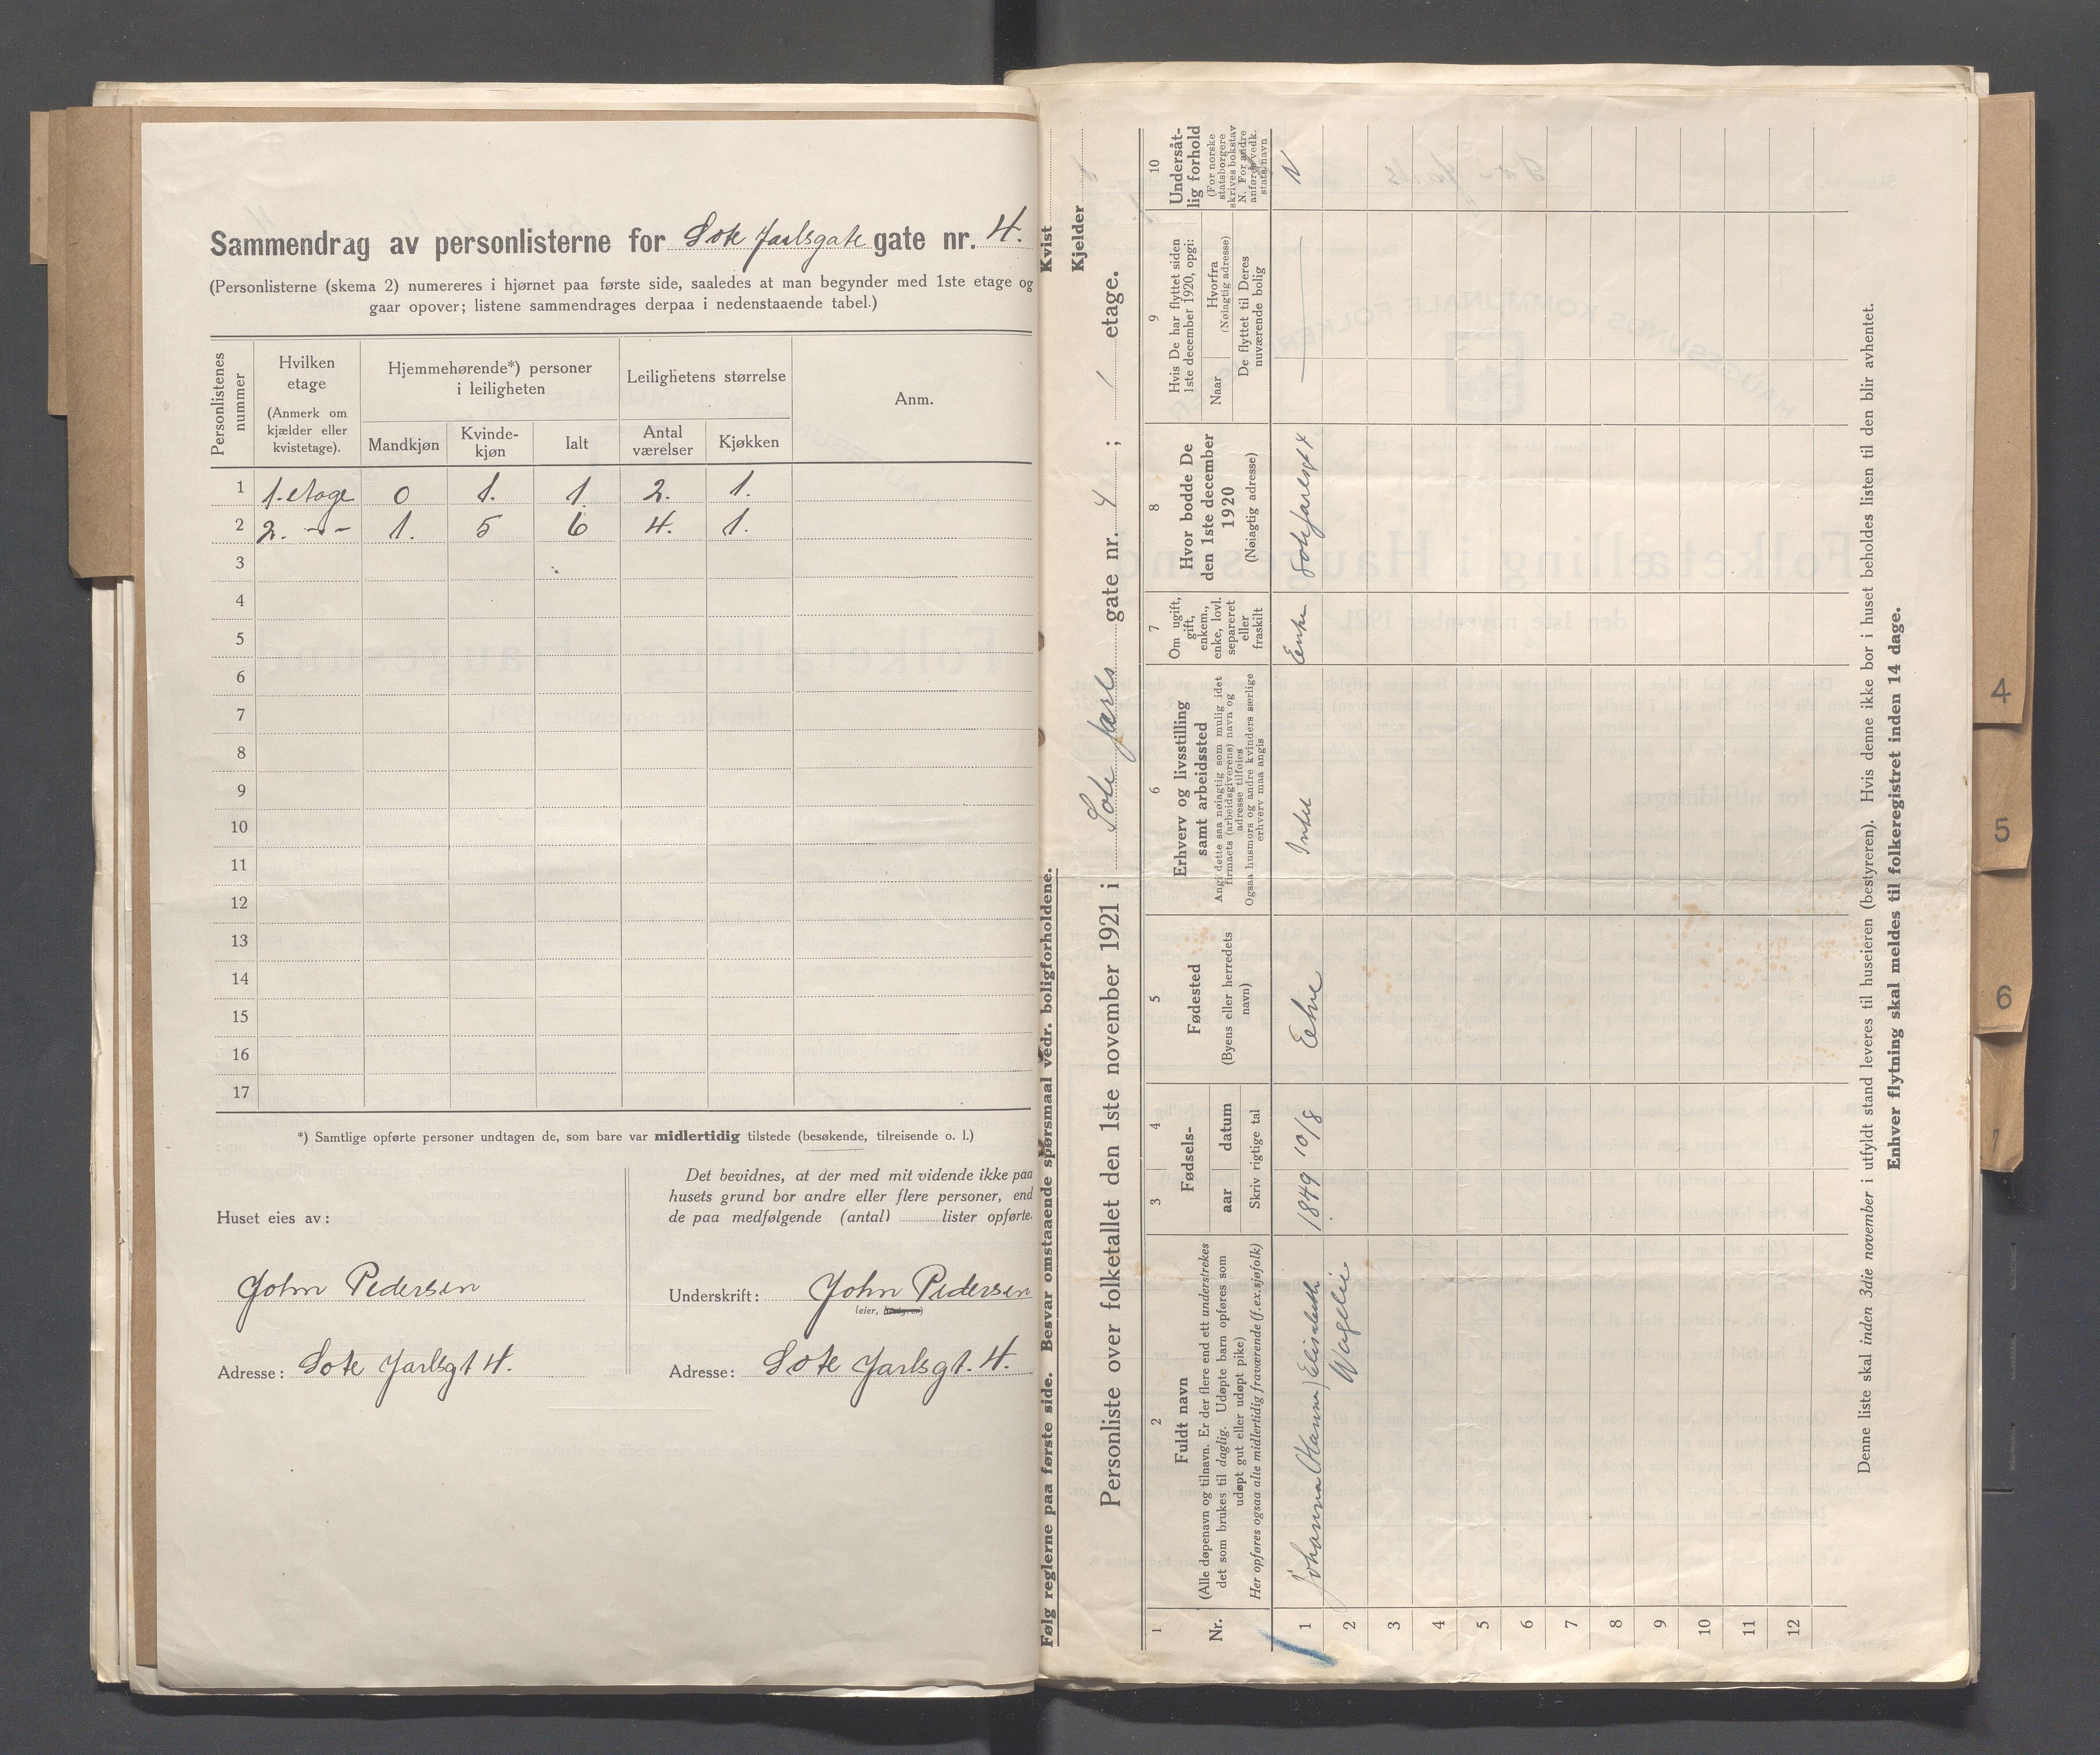 Sammendrag av personlisterne for Sote Jarlsgate gate nr. 4.
(Personlisterne (skema 2) numereres i hjørnet paa første side, saaledes at man begynder med 1ste etage og
gaar opover; listene sammendrages derpaa i nedenstaaende tabel.)
Personlistenes nummer
Hvilken etage
(Anmerk om kjælder eller kvistetage).
Hjemmehørende*) personer i leiligheten
Leilighetens størrelse
Anm.
Mandkjøn
Kvinde-kjøn
Ialt
Antal værelser
Kjøkken
1 1. etage 0 1. 1 2. 1.
2 2. -"- 1. 5 6 4. 1.
3
4
5
6
7
8
9
10
11
12
13
14
15
16
17
*) Samtlige opførte personer undtagen de, som bare var midlertidig tilstede (besøkende, tilreisende o. l.)
Huset eies av:
John Pedersen
Adresse: Sote Jarlsgt 4.
Det bevidnes, at der med mit vidende ikke paa
husets grund bor andre eller flere personer, end
de paa medfølgende (antal) lister opførte.
Underskrift: John Pedersen
(eier, bestyrer)
Adresse: Sote Jarlsgt. 4.
Følg reglerne paa første side. Besvar omstaaende spørsmaal vedr. boligforholdene.
Kvist
Kjelder
Personliste over folketallet den 1ste november 1921 i Sote Jarls gate nr. 4; 1 etage.
1
Nr.
2
Fuldt navn
(Alle døpenavn og tilnavn. Er der flere end ett understrekes
det som brukes til daglig. Udøpte barn opføres som
udøpt gut eller udøpt pike)
Her opføres ogsaa alle midlertidig fraværende (f.ex.sjøfolk)
3 4
Fødsels-
aar datum
Skriv rigtige tal
5
Fødested
(Byens eller herredets navn)
6
Erhverv og livsstilling
samt arbeidssted
Angi dette saa nøiagtig som mulig idet
firmaets (arbeidsgiverens) navn og
adresse tilføies
Ogsaa husmors og andre kvinders særlige
erhverv maa angis
7
Om ugift,
gift,
enkem.,
enke, lovl.
separeret
eller
fraskilt
8
Hvor bodde De
den 1ste december
1920
(Nøiagtig adresse)
9
Hvis De har flyttet siden
1ste december 1920, opgi:
Naar
Hvorfra
(Nøiagtig adresse)
De flyttet til Deres
nuværende bolig
10
Undersåt-
lig forhold
(For norske
statsborgere
skrives bokstav
N. For andre
anføres vedk.
stats navn
1 Johanna (Hanna) Elisabeth 1849 10/8 Eehne Intet Enke Sotejarlsgt 4 N
2 Wagelie
3
4
5
6
7
8
9
10
11
12
Denne liste skal inden 3die november i utfyldt stand leveres til huseieren (bestyreren). Hvis denne ikke bor i huset beholdes listen til den blir avhentet.
Enhver flytning skal meldes til folkeregistret inden 14 dage.
4
5
6